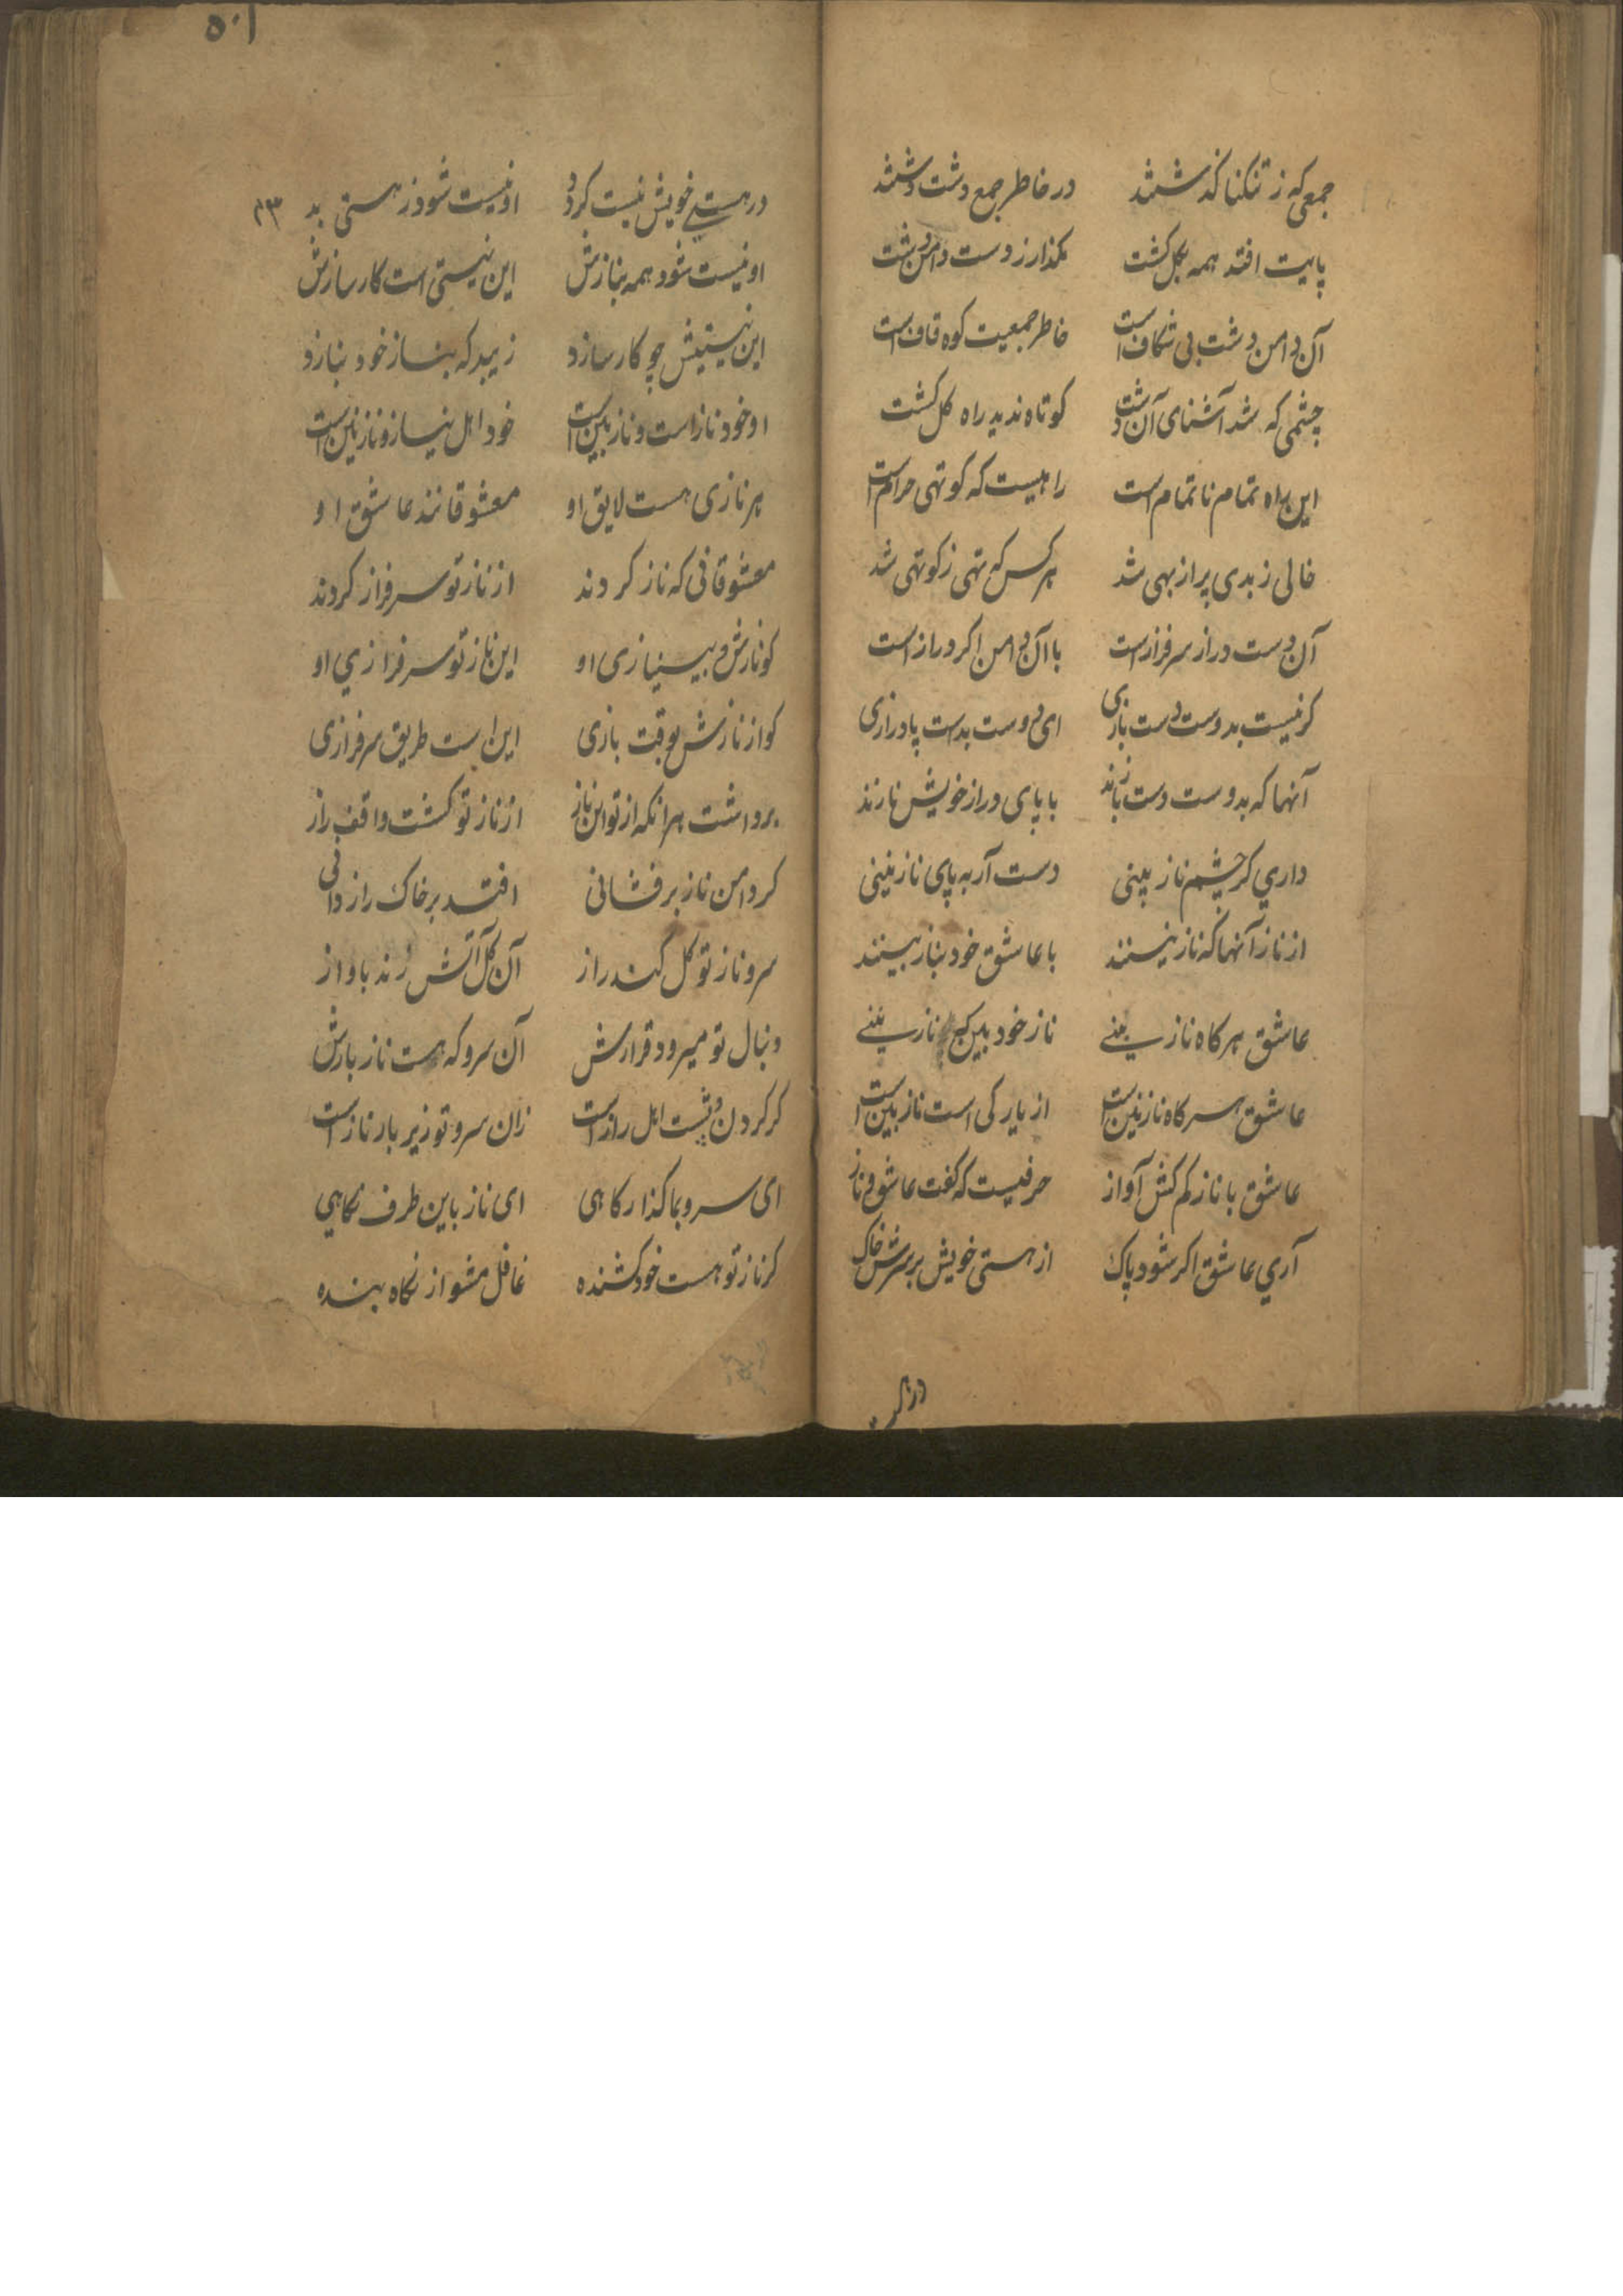 جمعی که ز تنکنا کذشتند در خاطر جمع دشت دشتند
پایت افتد همه بکل کشت مکذار ز دست دامن دشت
آن دامن دشت بی شکاف است خاطر جمعیت کوه قاف است
چشمی که شد آشنای آن دشت کوتاه ندید راه کل کشت
این راه تمام ناتمام است راهیست که کوتهی حرام است
خالی ز بدی پر از بهی شد هر کس که تهی ز کوتهی شد
آن دست دراز سرفراز است با آن دامن اکر دراز است
کر نیست بدوست دست بازی ای دوست بدست پا درازی
آنها که بدوست دست بازند با پای دراز خویش نازند
داری کر چشم ناز بینی دست آر به پای نازنینی
از ناز آنها که نازنینند با عاشق خود بناز بینند
عاشق هرکاه ناز بینی ناز خود بین کج نازنینی
عاشق هرکاه نازنین است از یار کی است نازبین است
عاشق با ناز کم کش آواز حرفیست که کفت عاشق و ناز
آری عاشق اکر شود پاک از هستی خویش بر سرش خاک
۵۰۱
در هستی خویش نیست کردد او نیست شود ز هستی بد ۴۳
او نیست شود همه بنازش این نیستی است کار سازش
این نیستیش چو کار سازد زیبد که بناز خود بنازد
او خود ناز است و نازبین است خود اهل نیاز و نازنین است
هر نازی هست لایق او معشوقانند عاشق او
معشوقانی که ناز کردند از ناز تو سرفراز کردند
کو نازش و بی نیازی او این ناز تو سرفرازی او
کو از نازش بوقت بازی این است طریق سرفرازی
برداشت هر آنکه از تو این ناز از ناز تو کشت واقف راز
کر دامن ناز برفشانی افتد بر خاک رازدانی
سرو ناز تو کل کند راز آن کل آتش زند باواز
دنبال تو میرود قرارش آن سرو که هست ناز بارش
کر کردن و پشت اهل راز است زان سرو تو زیر بار ناز است
ای سرو بما کذار کاهی ای ناز باین طرف نکاهی
کر ناز تو هست خود کشنده غافل مشو از نکاه بنده